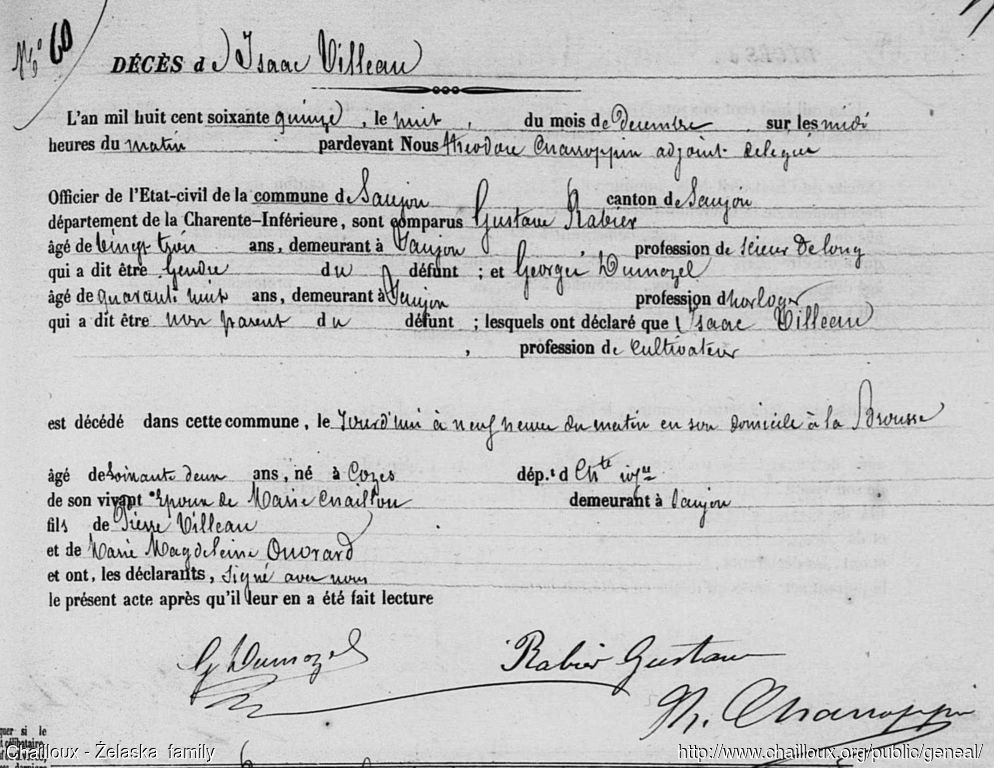 N° 60
DÉCÈS d' Isaac Villeau
L'an mil huit cent soixante quinze, le huit, du mois de Decembre sur les midi
heures du matin pardevant Nous Théodore Charroppin adjoint délégué
Officier de l'Etat-civil de la commune de Saujon canton de Saujon
département de la Charente-Inférieure, sont comparus Gustave Rabier
âgé de vingt trois ans, demeurant à Saujon profession de scieur de long
qui a dit être Gendre du défunt ; et Georges Dumozel
âgé de quarante huit ans, demeurant à Saujon profession d'horloger
qui a dit être non parent du défunt ; lesquels ont déclaré que Isaac Villeau
, profession de Cultivateur
est décédé dans cette commune, le Jourd'hui à neuf heures du matin en son domicile à la Brousse
âgé de soixante deux ans, né à Cozes dép.t d Ch.te inf.re
de son vivant Epoux de Marie Chaillou demeurant à Saujon
fils de Pierre Villeau
et de Marie Magdeleine Ouvrard
et ont, les déclarants, signé avec nous
le présent acte après qu'il leur en a été fait lecture
G Dumozel Rabier Gustave
Th. Charroppin
quer si le
célibataire
Chailloux - Želaska family http://www.chailloux.org/public/geneal/